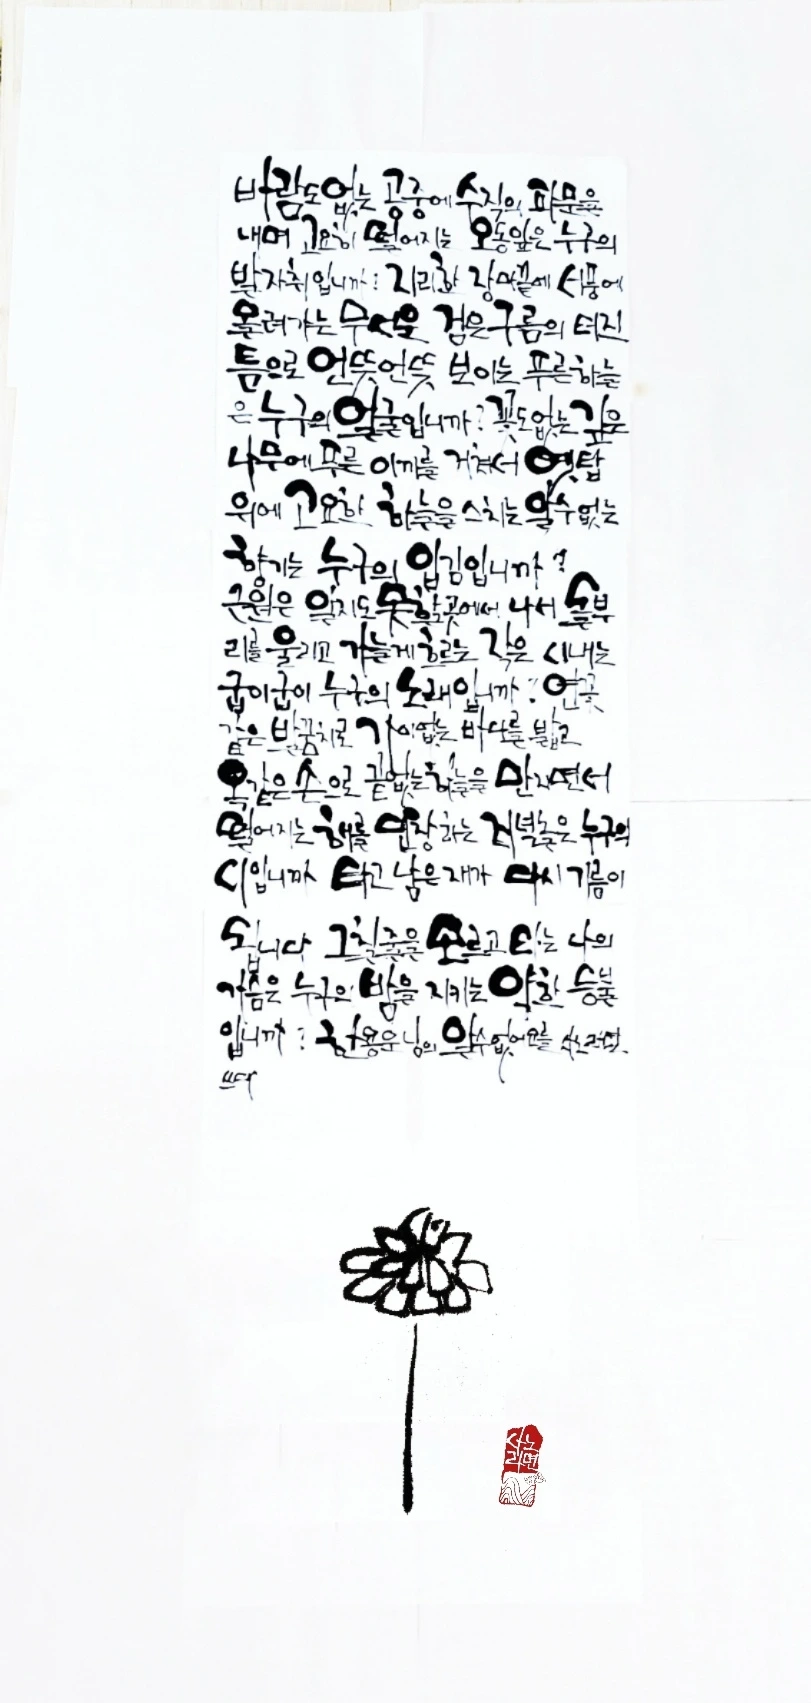 바람도 없는 공중에 수직의 파문을
내며 고요히 떨어지는 오동잎은 누구의
발자취입니까? 지리한 장마끝에 서풍에
몰려가는 무서운 검은 구름의 터진
틈으로 언뜻언뜻 보이는 푸른 하늘
은 누구의 얼굴입니까? 꽃도 없는 깊은
나무에 푸른 이끼를 거쳐서 옛탑
위에 고요한 하늘을 스치는 알 수 없는
향기는 누구의 입김입니까?
근원은 알지도 못할 곳에서 나서 돌부
리를 울리고 가늘게 흐르는 작은 시내는
굽이굽이 누구의 노래입니까? 연꽃
같은 발꿈치로 가이없는 바다를 밟고
옥같은 손으로 끝없는 하늘을 만지면서
떨어지는 해를 단장하는 저녁놀은 누구의
시입니까 타고 남은 재가 다시 기름이
됩니다 그칠줄을 모르고 타는 나의
가슴은 누구의 밤을 지키는 약한 등불
입니까? 한용운님의 알 수 없어요를
쓰다